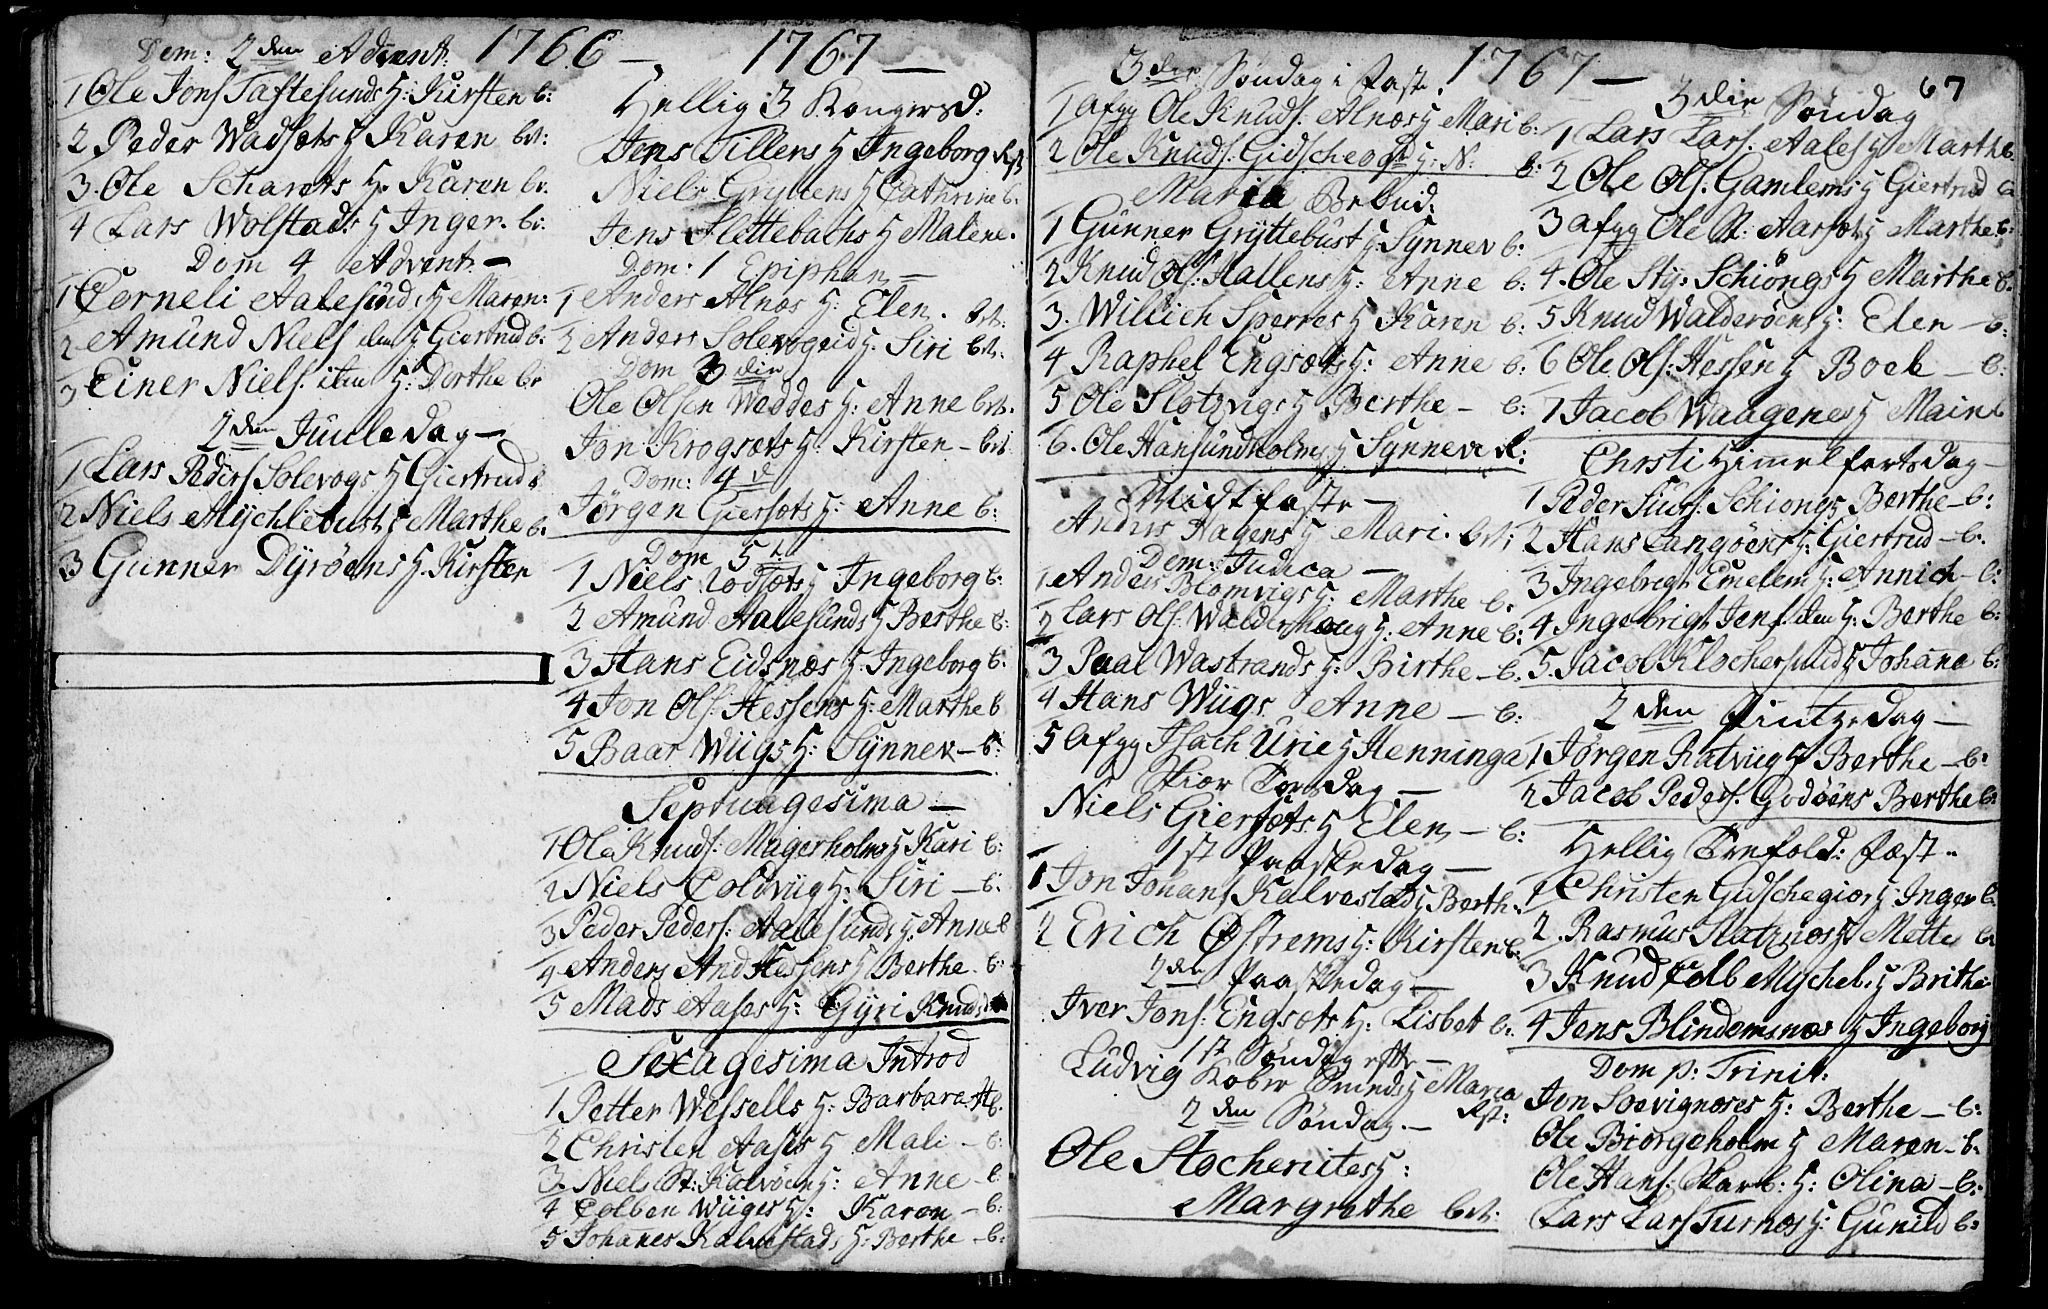 1766 –
Dom: 2den Advent:
1 Ole Jons Taftesunds H: Kirsten b:
2 Peder Wadsæts H Karen bet:
3. Ole Scharets H. Karen be.
4 Lars Wolstads H Inger. be:
Dom 4 Advent –
1 Corneli Aalesunds H Maren:
2 Amund Niels den H Giertrud b.
3 Einer Niels. item H: Dorthe be
2den Juuledag –
1 Lars Peders Solevogs H Giertrud
2 Niels Mychlebust H Marthe b.
3 Gunner Dyrøens H. Kirsten
1767 –
Hellig 3 Kongersd:
Jens Tillers H Ingeborg
Niels Gryttens H Cathrine b.
Jens Slettebachs H Malene.
Dom: 1 Epiphan –
1 Anders Alnos H: Elen. bet:
2 Anders Solevogeid H. Siri bet.
Dom 3die
Ole Olsen Weddes H: Anne bet.
Jon Krogsæts H: Kirsten – bet
Dom: 4
Jørgen Giersæts H: Anne b:
Dom 5t
1 Niels Rodsæts H Ingeborg b:
2 Amund Aalesunds H Berthe b:
3 Hans Eidsnæs H. Ingeborg b:
4 Jon Ols: Hessens H: Marthe b
5 Baar Wiigs H: Synnev – b:
Septuagesima –
1 Ole Knuds: Magerholms H Kari b:
2 Niels Coldviig H: Siri – b:
3 Peder Peders: Aalesunds H: Anne b
4 Anders And Hessens H Berthe. b:
5 Mads Aases H: Gyri Knuds
Sexagesima Introd
1 Petter Wessells H: Barbara H b.
2 Christen Aases H Mali – b:
3. Niels St: Kalvøen H: Anne – b
4 Colben Wiiges H: Karen – b:
5 Johanes Kalvestads H: Berthe – b:
1767 –
3die Søndag i Faste
1 Afgg Ole Knuds: Alnæs H Mari b:
2 Ole Knuds: Gidscheogr H: N: b:
Maria Bebud:
1 Gunner Gryttebust H: Synnev b:
2 Knud Ols: Hallens H: Anne b:
3. Willich Sperres H Karen b:
4 Raphel Engsæts H: Anne b:
5 Ole Slotzvigs H Berthe – b:
6. Ole Hansundholms H Synneve
Midtfaste –
Anders Hagens H Mari. bet;
Dom: Judica –
1 Anders Blomvigs H: Marthe b:
2 Lars Ols: Walderhoug H: Anne b:
3 Paal Wastrands H: Birthe – b:
4 Hans Wiigs Anne – b:
5 Afgg Isach Urie H Henninga
Skiør Torsdag –
Niels Giersæts H Elen, – b:
1st Paaskedag –
1 Jon Johans Kalvestad H Berth.
2 Erich Østrems H: Kirsten b:
2den Paaskedag –
Iver Jons: Engsæts H: Lisbet b:
1st Søndag efter –
Ludvig Kober Trunds H Maria
2den Søndag. –
Ole Stocherites H:
Margrethe bet:
67
3die Søndag
1 Lars Lars: Aales H Marthe b.
2 Ole Ols. Gamlems H Giertrud b
3 Afgg Ole St: Aarsæt H Marthe b:
4. Ole Sty: Schiongs H Marthe b:
5 Knud Walderøens H: Elen – b:
6 Ole Ols: Hessen H Boel – b:
7 Jacob Waagenes H Marin b
Christi Himmelfartsdag –
1 Peder Siurs: Schiongs Berthe – b:
2 Hans Langøens H: Giertrud – b.
3 Ingebrigt Emelem H: Annich – b:
4 Ingebrigt Jens: den H: Berthe b:
5. Jacob Klochersund H Johana b:
2den Pintzedag –
1 Jørgen Ratviig H Berthe – b:
2 Jacob Peders. Godøens Berthe b:
Hellig Trefold: Fæst.
1 Christen Gidschegior H: Inger b.
2. Rasmus Slotznæs H Mette be
3 Knud Colb Mychel: H Brithe
4 Jens Blindemsnæs H Ingeborg
Dom p: Trinit:
Jon Soevignæses H: Berthe – b:
Ole Biorgeholm H Maren – b:
Ole Hans: Skarb: H: Olina – b:
Lars Lars Turnæs H: Gunild b: